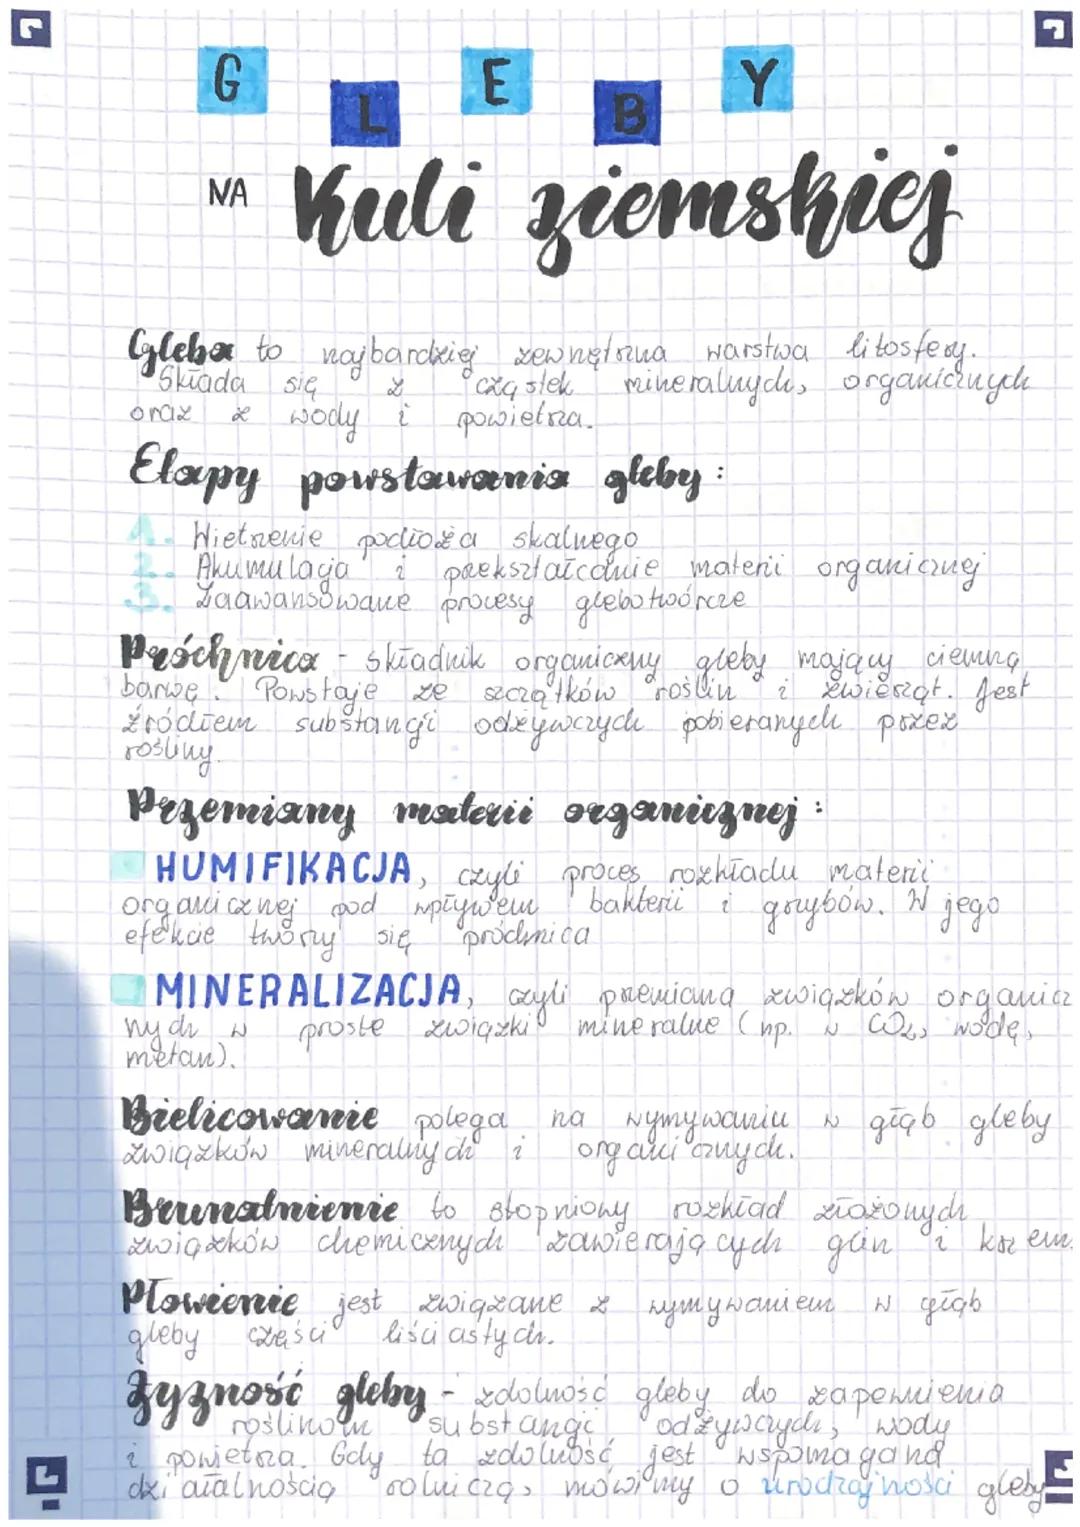 GLEBY
NA Kuli ziemskiej
Gleba to najbardziej zewnętrzna warstwa litosfery.
Składa się z cząstek mineralnych, organicznych
oraz z wody i powietrza.
Etapy powstawania gleby:
1. Wietrzenie podłoża skalnego
2. Akumulacja i przekształcanie materii organicznej
3. Zaawansowane procesy glebotwórcze
Próchnica - składnik organiczny gleby mający ciemną
barwę. Powstaje ze szczątków roślin i zwierząt. Jest
źródłem substancji odżywczych pobieranych przez
rośliny.
Przemiany materii organicznej:
HUMIFIKACJA, czyli proces rozkładu materii
organicznej pod wpływem bakterii i grzybów. W jego
efekcie tworzy się próchnica
MINERALIZACJA, czyli przemiana związków organicz
nych w proste związki mineralne (np. w CO2, wodę,
metan).
Bielicowanie polega na wymywaniu w głąb gleby
związków mineralnych i organicznych.
Brunatnienie to stopniowy rozkład złożonych
związków chemicznych zawierających glin i krzem.
Płowienie jest związane z wymywaniem w głąb
gleby części liściastych.
Żyzność gleby - zdolność gleby do zapewnienia
roślinom substancji odżywczych, wody
i powietrza. Gdy ta zdolność jest wspomagana
działalnością rolniczą, mówimy o urodzajności gleby